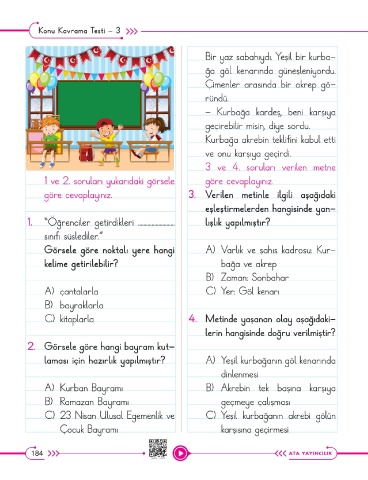 Konu Kavrama Testi – 3
1 ve 2. soruları yukarıdaki görsele
göre cevaplayınız.
1. "Öğrenciler getirdikleri ....................
sınıfı süslediler."
Görsele göre noktalı yere hangi
kelime getirilebilir?
A) çantalarla
B) bayraklarla
C) kitaplarla
2. Görsele göre hangi bayram kut-
laması için hazırlık yapılmıştır?
A) Kurban Bayramı
B) Ramazan Bayramı
C) 23 Nisan Ulusal Egemenlik ve
Çocuk Bayramı
Bir yaz sabahıydı. Yeşil bir kurba-
ğa göl kenarında güneşleniyordu.
Çimenler arasında bir akrep gö-
ründü.
– Kurbağa kardeş, beni karşıya
geçirebilir misin, diye sordu.
Kurbağa akrebin teklifini kabul etti
ve onu karşıya geçirdi.
3 ve 4. soruları verilen metne
göre cevaplayınız.
3. Verilen metinle ilgili aşağıdaki
eşleştirmelerden hangisinde yan-
lışlık yapılmıştır?
A) Varlık ve şahıs kadrosu: Kur-
bağa ve akrep
B) Zaman: Sonbahar
C) Yer: Göl kenarı
4. Metinde yaşanan olay aşağıdaki-
lerin hangisinde doğru verilmiştir?
A) Yeşil kurbağanın göl kenarında
dinlenmesi
B) Akrebin tek başına karşıya
geçmeye çalışması
C) Yeşil kurbağanın akrebi gölün
karşısına geçirmesi
184
ATA YAYINCILIK